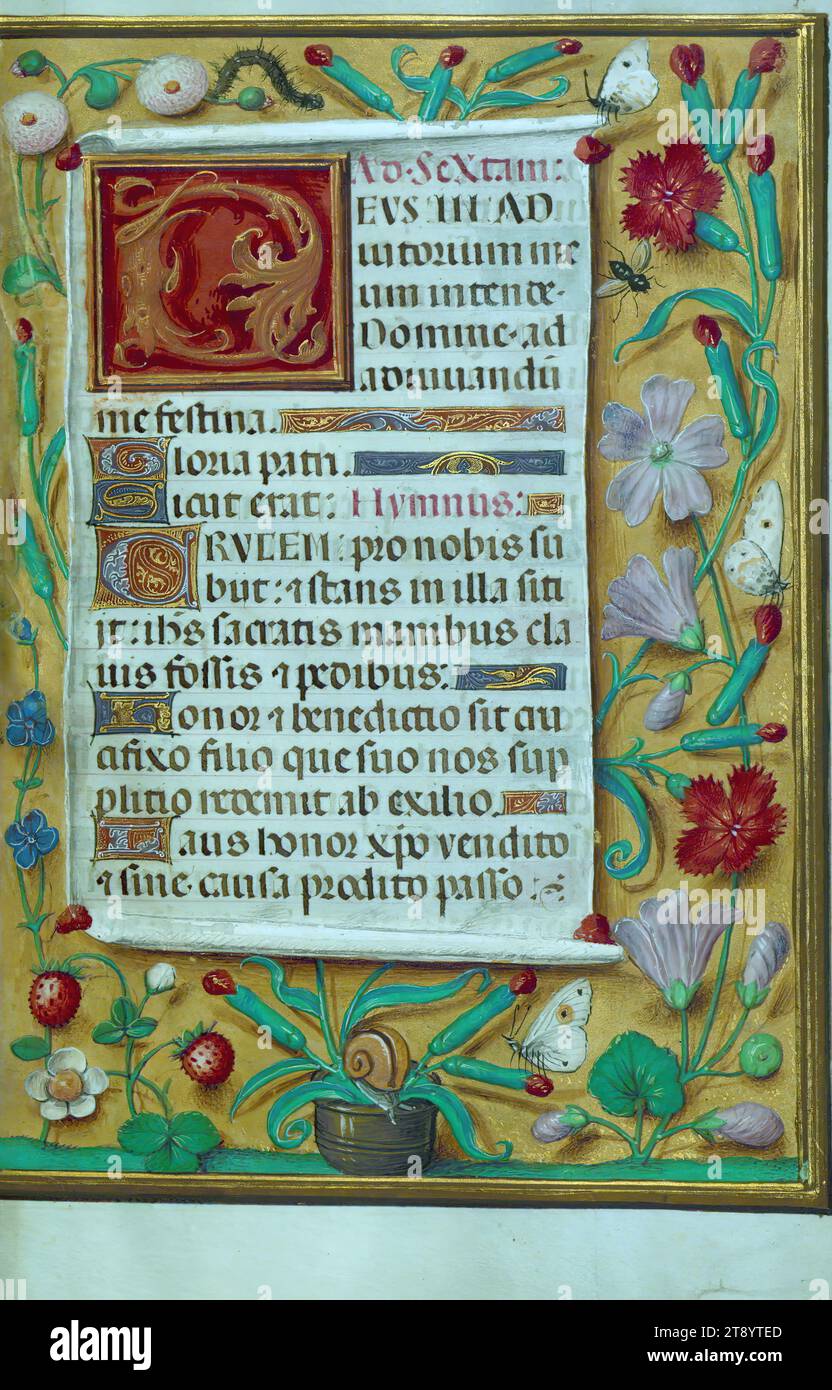 Ad. Sextam:
DEVS IN AD
iutorium me
um intende.
Domine. ad
adiuuandū
me festina.
Gloria patri.
Sicut erat: Hymnus:
CRVCEM: pro nobis su
biit: ⁊ stans in illa siti
jt: ihs sacratis manibus cla
uis fossis ⁊ pedibus:
Honor ⁊ benedictio sit cru
cifixo filio que suo nos sup
plitio redemit ab exilio.
Laus honor xp̄o vendito
⁊ sine. causa prodito passo:
alamy
Image ID: 2T8YTED
www.alamy.com